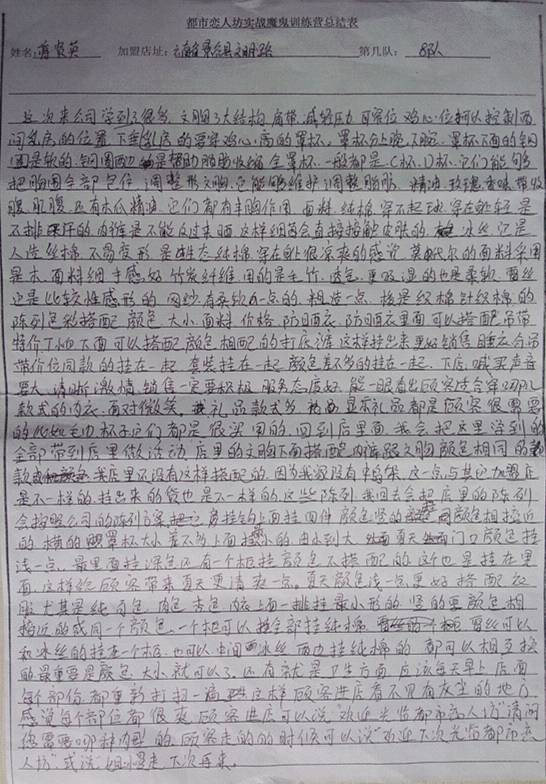 都市恋人坊实战魔鬼训练营总结表
姓名:蒋贤英 加盟店址: 文明路 第几队: 8队
这次来公司学到了很多,文胸3大结构,肩带,减轻压力 可容位 鸡心位柯以控制两
间乳房的位置,下垂乳房的要穿鸡心高的罩杯,罩杯分上碗,下碗,罩杯下面的钢
圈是软的,钢圈两边是帮助脂肪收缩,全罩杯一般都是C杯,D杯,它们能够
把胸围全部包住,调整形文胸,它能够维护调整脂肪,精油,玫瑰香味,带收
腹,肌肤,还有木瓜精油,它们都有丰胸作用,面料,纯棉,穿不起球,穿在身轻,是
不排汗的,内裤是不能反过来晒,这样细菌会直接接触皮肤的,冰丝,它是
人造丝棉,不易变形,是性态纯棉,穿在身很凉爽的感觉,莫代尔的面料采用
是木,面料细,手感好,竹炭纤维用的是毛竹,透气,更吸湿的也是柔软,蕾丝
还是比较性感形的,网纱有柔软一点的,粗造一点,
陈列色彩搭配,颜色,大小,面料,价格,防日晒衣,防日晒衣里面可以搭配吊带
特价T恤下面可以搭配颜色相配的打底裤,这样挂出来更好销售
带价位同款的挂在一起,套装挂在一起,颜色差不多的挂在一起,下店,喊买声音
要大,清晰,激情,销售一定要积极,服务态度好,能一眼看出顾客适合穿哪儿
款式的内衣,面对微笑,礼品款式多,礼品都是顾客很需要
的,比如毛巾,杯子,它们都是很实用的,回到店里面我会把这里学到的
全部带到店里做活动,店里的文胸下面搭配内裤跟文胸颜色相同的
款式,我店里还没有这样搭配的,因为我家没有中岛架,这一点与其它加盟店
是不一样的,挂出来的货也是不一样的,这些陈列,我回去会把店里的陈列
会按照公司的陈列方案,把它房挂钩上面挂四件,颜色竖的同颜色相接近
的,横的罩杯大小差不多,上面挂小的,由小到大,夏天门口颜色挂
浅一点,最里面挂深色,还有一个柜挂颜色不搭配的,这个也是挂在里
面,这样给顾客带来夏天更清爽一点,夏天颜色浅一点,更好搭配衣
服,尤其是纯白色,肉色,杏色,内衣上面一排挂最小形的,竖的要颜色相
接近的或同一个颜色,一个柜可以全部挂纯棉,蕾丝可以
和冰丝的挂在一个柜,也可以中间冰丝,两边挂纯棉的,都可以相互换
的,最重要是颜色,大小就可以了,还有就是卫生方面,应该每天早上店面
每个部份都重新打扫一遍,这样顾客进店看不见有灰尘的地方,
感觉每个部位都很爽,顾客进店可以说“欢迎光临都市恋人坊”请问
您需要哪种内型的,顾客走的的时候可以说“欢迎下次光临都市恋
人坊”或说:姐,慢走,下次再来。